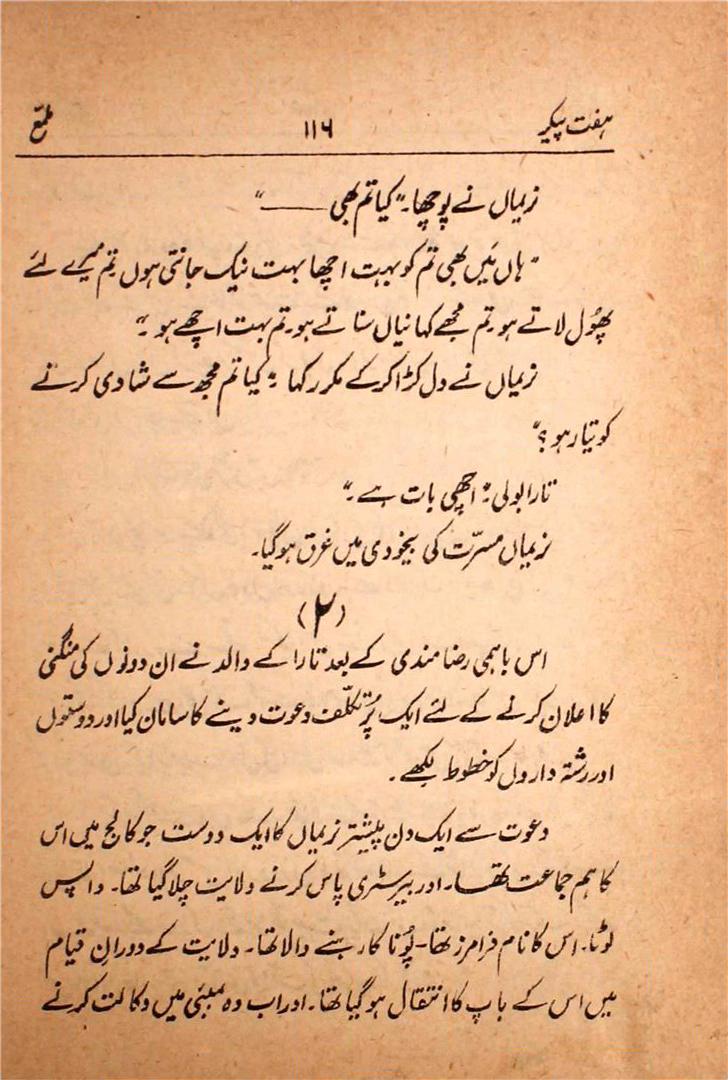 ہفت پیکر ۱۱۶ طمع
نریماں نے پوچھا۔ "کیا تم بھی ــــــ"
"ہاں مَیں بھی تم کو بہت اچھا بہت نیک جانتی ہوں۔ تم میرے لئے
پھُول لاتے ہو۔ تم مجھے کہانیاں سناتے ہو۔ تم بہت اچھے ہو۔"
نریماں نے دل کڑا کر کے مکرر کہا "کیا تم مجھ سے شادی کرنے
کو تیار ہو؟"
تارا بولی "اچھی بات ہے۔"
نریماں مسرّت کی بیخودی میں غرق ہو گیا۔
(۲)
اس باہمی رضامندی کے بعد تارا کے والد نے ان دونوں کی منگنی
کا اعلان کرنے کے لئے ایک پُر تکلّف دعوت دینے کا سامان کیا اور دوستوں
اور رشتہ داروں کو خطوط لکھے۔
دعوت سے ایک دن پیشتر نریماں کا ایک دوست جو کالج میں اس
کا ہم جماعت تھا۔ اور بیرسٹری پاس کرنے ولایت چلا گیا تھا۔ واپس
لوٹا۔ اس کا نام فرامرز تھا۔ پُونا کا رہنے والا تھا۔ ولایت کے دورانِ قیام
میں اس کے باپ کا انتقال ہو گیا تھا۔ اور اب وہ بمبئی میں وکالت کرنے